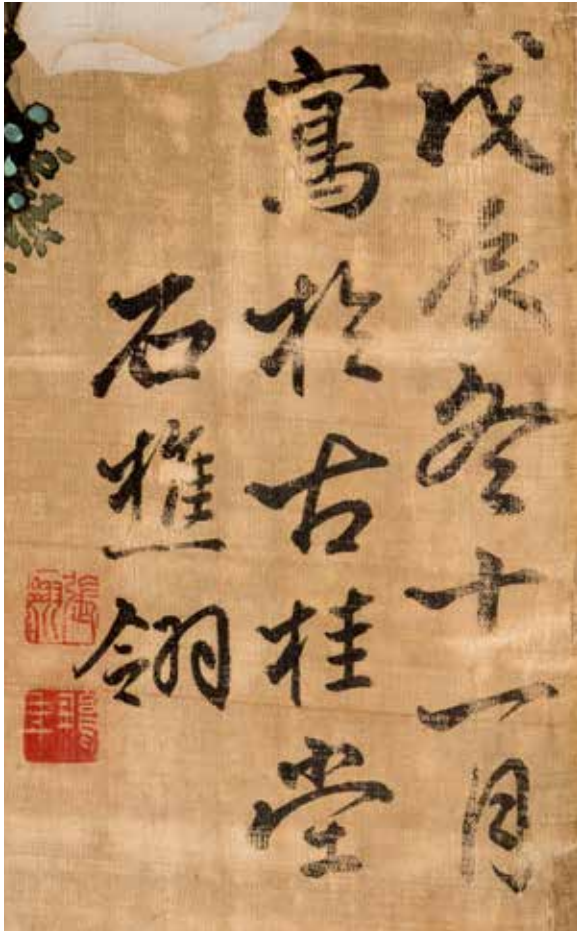 戊辰冬十一月
寫於古桂堂
石樵翎
張翎